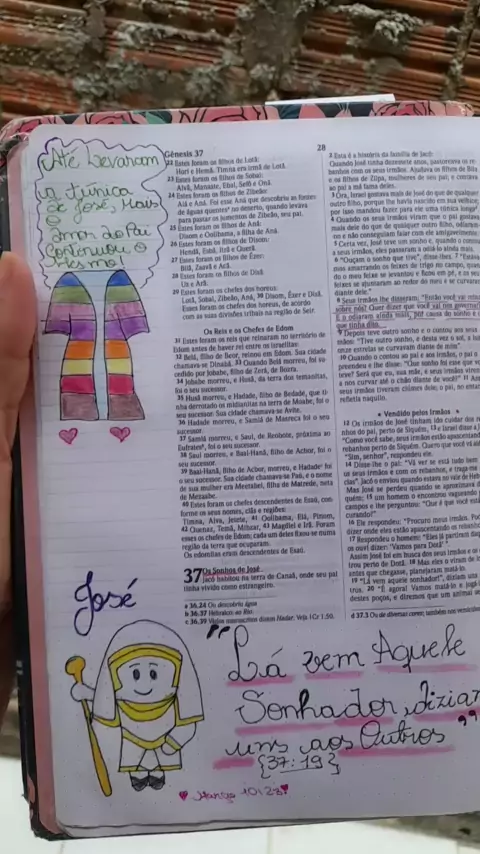 Até Levaram
a túnica
de José, Mais
o
amor do Pai
Continuou o
mesmo!
Gênesis 37
28
22 Estes foram os filhos de Lotã:
Hori e Hemã. Timna era irmã de Lotã.
23 Estes foram os filhos de Sobal:
Alvã, Manaate, Ebal, Sefô e Onã.
24 Estes foram os filhos de Zibeão:
Aiá e Aná. Foi esse Aná que descobriu as fontes
de águas quentes no deserto, quando levava
para pastar os jumentos de Zibeão, seu pai.
25 Estes foram os filhos de Aná:
Disom e Oolibama, a filha de Aná.
26 Estes foram os filhos de Disom:
Hendã, Esbã, Itrã e Querã.
27 Estes foram os filhos de Ézer:
Bilã, Zaavã e Acã.
28 Estes foram os filhos de Disã:
Uz e Arã.
29 Estes foram os chefes dos horeus:
Lotã, Sobal, Zibeão, Aná, 30 Disom, Ézer e Disã.
Esses foram os chefes dos horeus, de acordo
com as suas divisões tribais na região de Seir.
Os Reis e os Chefes de Edom
31 Estes foram os reis que reinaram no território de
Edom antes de haver rei entre os israelitas:
32 Belá, filho de Beor, reinou em Edom. Sua cidade
chamava-se Dinabá. 33 Quando Belá morreu, foi su-
cedido por Jobabe, filho de Zerá, de Bozra.
34 Jobabe morreu, e Husã, da terra dos temanitas,
foi o seu sucessor.
35 Husã morreu, e Hadade, filho de Bedade, que ti-
nha derrotado os midianitas na terra de Moabe, foi o
seu sucessor. Sua cidade chamava-se Avite.
36 Hadade morreu, e Samlá de Masreca foi o seu
sucessor.
37 Samlá morreu, e Saul, de Reobote, próxima ao
Eufrates, foi o seu sucessor.
38 Saul morreu, e Baal-Hanã, filho de Acbor, foi o
seu sucessor.
39 Baal-Hanã, filho de Acbor, morreu, e Hadade foi
o seu sucessor. Sua cidade chamava-se Paú, e o nome
de sua mulher era Meetabel, filha de Matrede, neta
de Mezaabe.
40 Estes foram os chefes descendentes de Esaú, con-
forme os seus nomes, clãs e regiões:
Timna, Alva, Jetete, 41 Oolibama, Elá, Pinom,
42 Quenaz, Temã, Mibzar, 43 Magdiel e Irã. Foram
esses os chefes de Edom; cada um deles fixou-se numa
região da terra que ocuparam.
Os edomitas eram descendentes de Esaú.
Os Sonhos de José
37 Jacó habitou na terra de Canaã, onde seu pai
tinha vivido como estrangeiro.
a 36.24 Ou descobriu água
b 36.37 Hebraico: ao Rio
c 36.39 Vários manuscritos dizem Hadar. Veja 1Cr 1.50.
2 Esta é a história da família de Jacó:
Quando José tinha dezessete anos, pastoreava os re-
banhos com os seus irmãos. Ajudava os filhos de Bila
e os filhos de Zilpa, mulheres de seu pai; e contava
ao pai a má fama deles.
3 Ora, Israel gostava mais de José do que de qualquer
outro filho, porque lhe havia nascido em sua velhice;
por isso mandou fazer para ele uma túnica longa
4 Quando os seus irmãos viram que o pai gostava
mais dele do que de qualquer outro filho, odiaram-
no e não conseguiam falar com ele amigavelmente.
5 Certa vez, José teve um sonho e, quando o contou
a seus irmãos, eles passaram a odiá-lo ainda mais.
6 "Ouçam o sonho que tive", disse-lhes. 7 "Estáva-
mos amarrando os feixes de trigo no campo, quando
o meu feixe se levantou e ficou em pé, e os seus
feixes se ajuntaram ao redor do meu e se curvaram
diante dele."
8 Seus irmãos lhe disseram: "Então você vai reinar
sobre nós? Quer dizer que você vai nos governar?"
E o odiaram ainda mais, por causa do sonho e
que tinha dito.
9 Depois teve outro sonho e o contou aos seus
"Tive outro sonho, e desta vez o sol, a lua
onze estrelas se curvavam diante de mim".
10 Quando o contou ao pai e aos irmãos, o pai o
preendeu e lhe disse: "Que sonho foi esse que você
teve? Será que eu, sua mãe, e seus irmãos viremos
a nos curvar até o chão diante de você?" 11 Assim
seus irmãos tiveram ciúmes dele; o pai, no entanto,
refletia naquilo.
Vendido pelos Irmãos
12 Os irmãos de José tinham ido cuidar dos re-
nhos do pai, perto de Siquém, 13 e Israel disse a J
"Como você sabe, seus irmãos estão apascentando
rebanhos perto de Siquém. Quero que você vá até
"Sim, senhor", respondeu ele.
14 Disse-lhe o pai: "Vá ver se está tudo bem
os seus irmãos e com os rebanhos, e traga-me
cias". Jacó o enviou quando estava no vale de Heb
Mas José se perdeu quando se aproximava de
quém; 15 um homem o encontrou vagueando
campos e lhe perguntou: "Que é que você está
curando?"
16 Ele respondeu: "Procuro meus irmãos. Pod
dizer onde eles estão apascentando os rebanho
17 Respondeu o homem: "Eles já partiram daq
os ouvi dizer: 'Vamos para Dotã'".
Assim José foi em busca dos seus irmãos e os
trou perto de Dotã. 18 Mas eles o viram de lo
antes que chegasse, planejaram matá-lo.
19 "Lá vem aquele sonhador!", diziam uns
tros. 20 "É agora! Vamos matá-lo e jogá-l
destes poços, e diremos que um animal se
d 37.3 Ou de diversas cores; também nos versículos
José
"Lá vem Aquele
Sonhador, diziam
uns aos Outros"
{37:19}